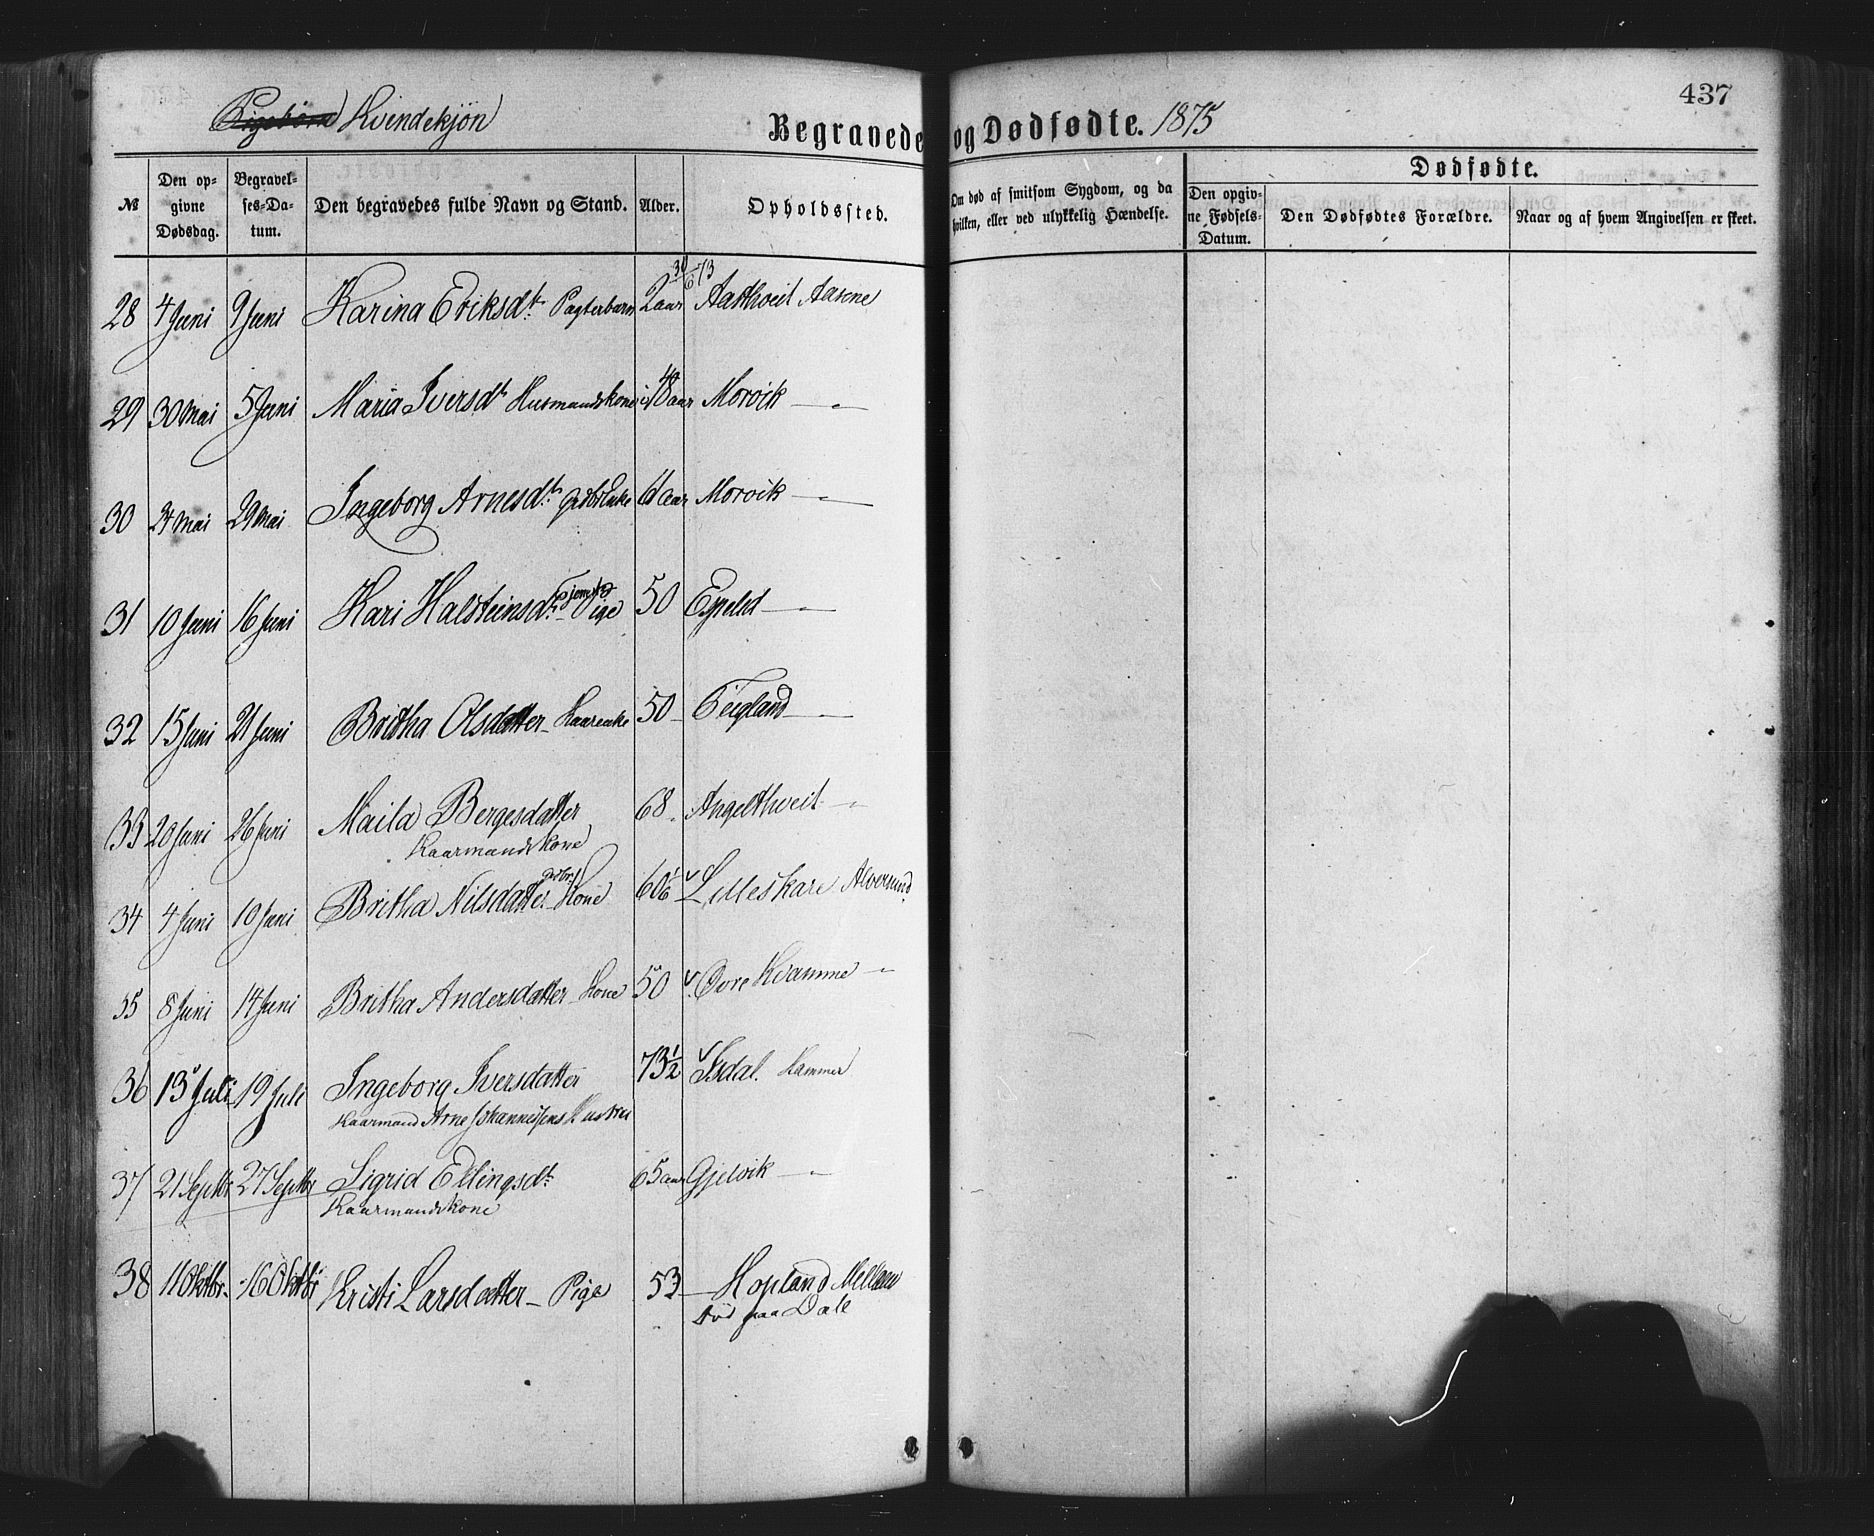 437
Pigebørn Kvindekjön
Begravede og Dødfødte. 1875
№
Den opgivne Dødsdag.
Begravelses-Datum.
Den begravedes fulde Navn og Stand.
Alder.
Opholdssted.
Om død af smitsom Sygdom, og da hvilken, eller ved ulykkelig Hændelse.
Dødfødte.
Den opgivne Fødsels-Datum.
Den Dødfødtes Forældre.
Naar og af hvem Angivelsen er skeet.
28 4 Juni 9 Juni Karina Eriksdt. Pagterbarn 2 aar 30/6 73 Aastveit Aasene
29 30 Mai 5 Juni Maria Iversdt. Husmandskone 48 aar Morvik — " —
30 24 Mai 29 Mai Ingeborg Arnesdt. 61 aar Morvik — " —
31 10 Juni 16 Juni Kari Halsteinsdt. Tjenest Pige 50 — " —
32 15 Juni 21 Juni Britha Olsdatter 50 Teigland — " —
33 20 Juni 26 Juni Maila Bergesdatter 68 Angelthveit — " —
Kaarmandskone
34 4 Juni 10 Juni Britha Nilsdatter Kone 60 1/6 Lilleskare Alversund
35 8 Juni 14 Juni Britha Andersdatter Kone 50 Øvre Kvamme — " —
36 13 Juli 19 Juli Ingeborg Iversdatter 73 1/2 Isdal. Hammer
Kaarmand Arne Johannessens Hustru
37 21 Septbr 27 Septbr Sigrid Ellingsdt. 65 aar Gjelvik — " —
Kaarmandskone
38 11 Oktbr. 16 Oktbr Kristi Larsdatter — Pige 53 — Hopland Mellem
død paa Dale